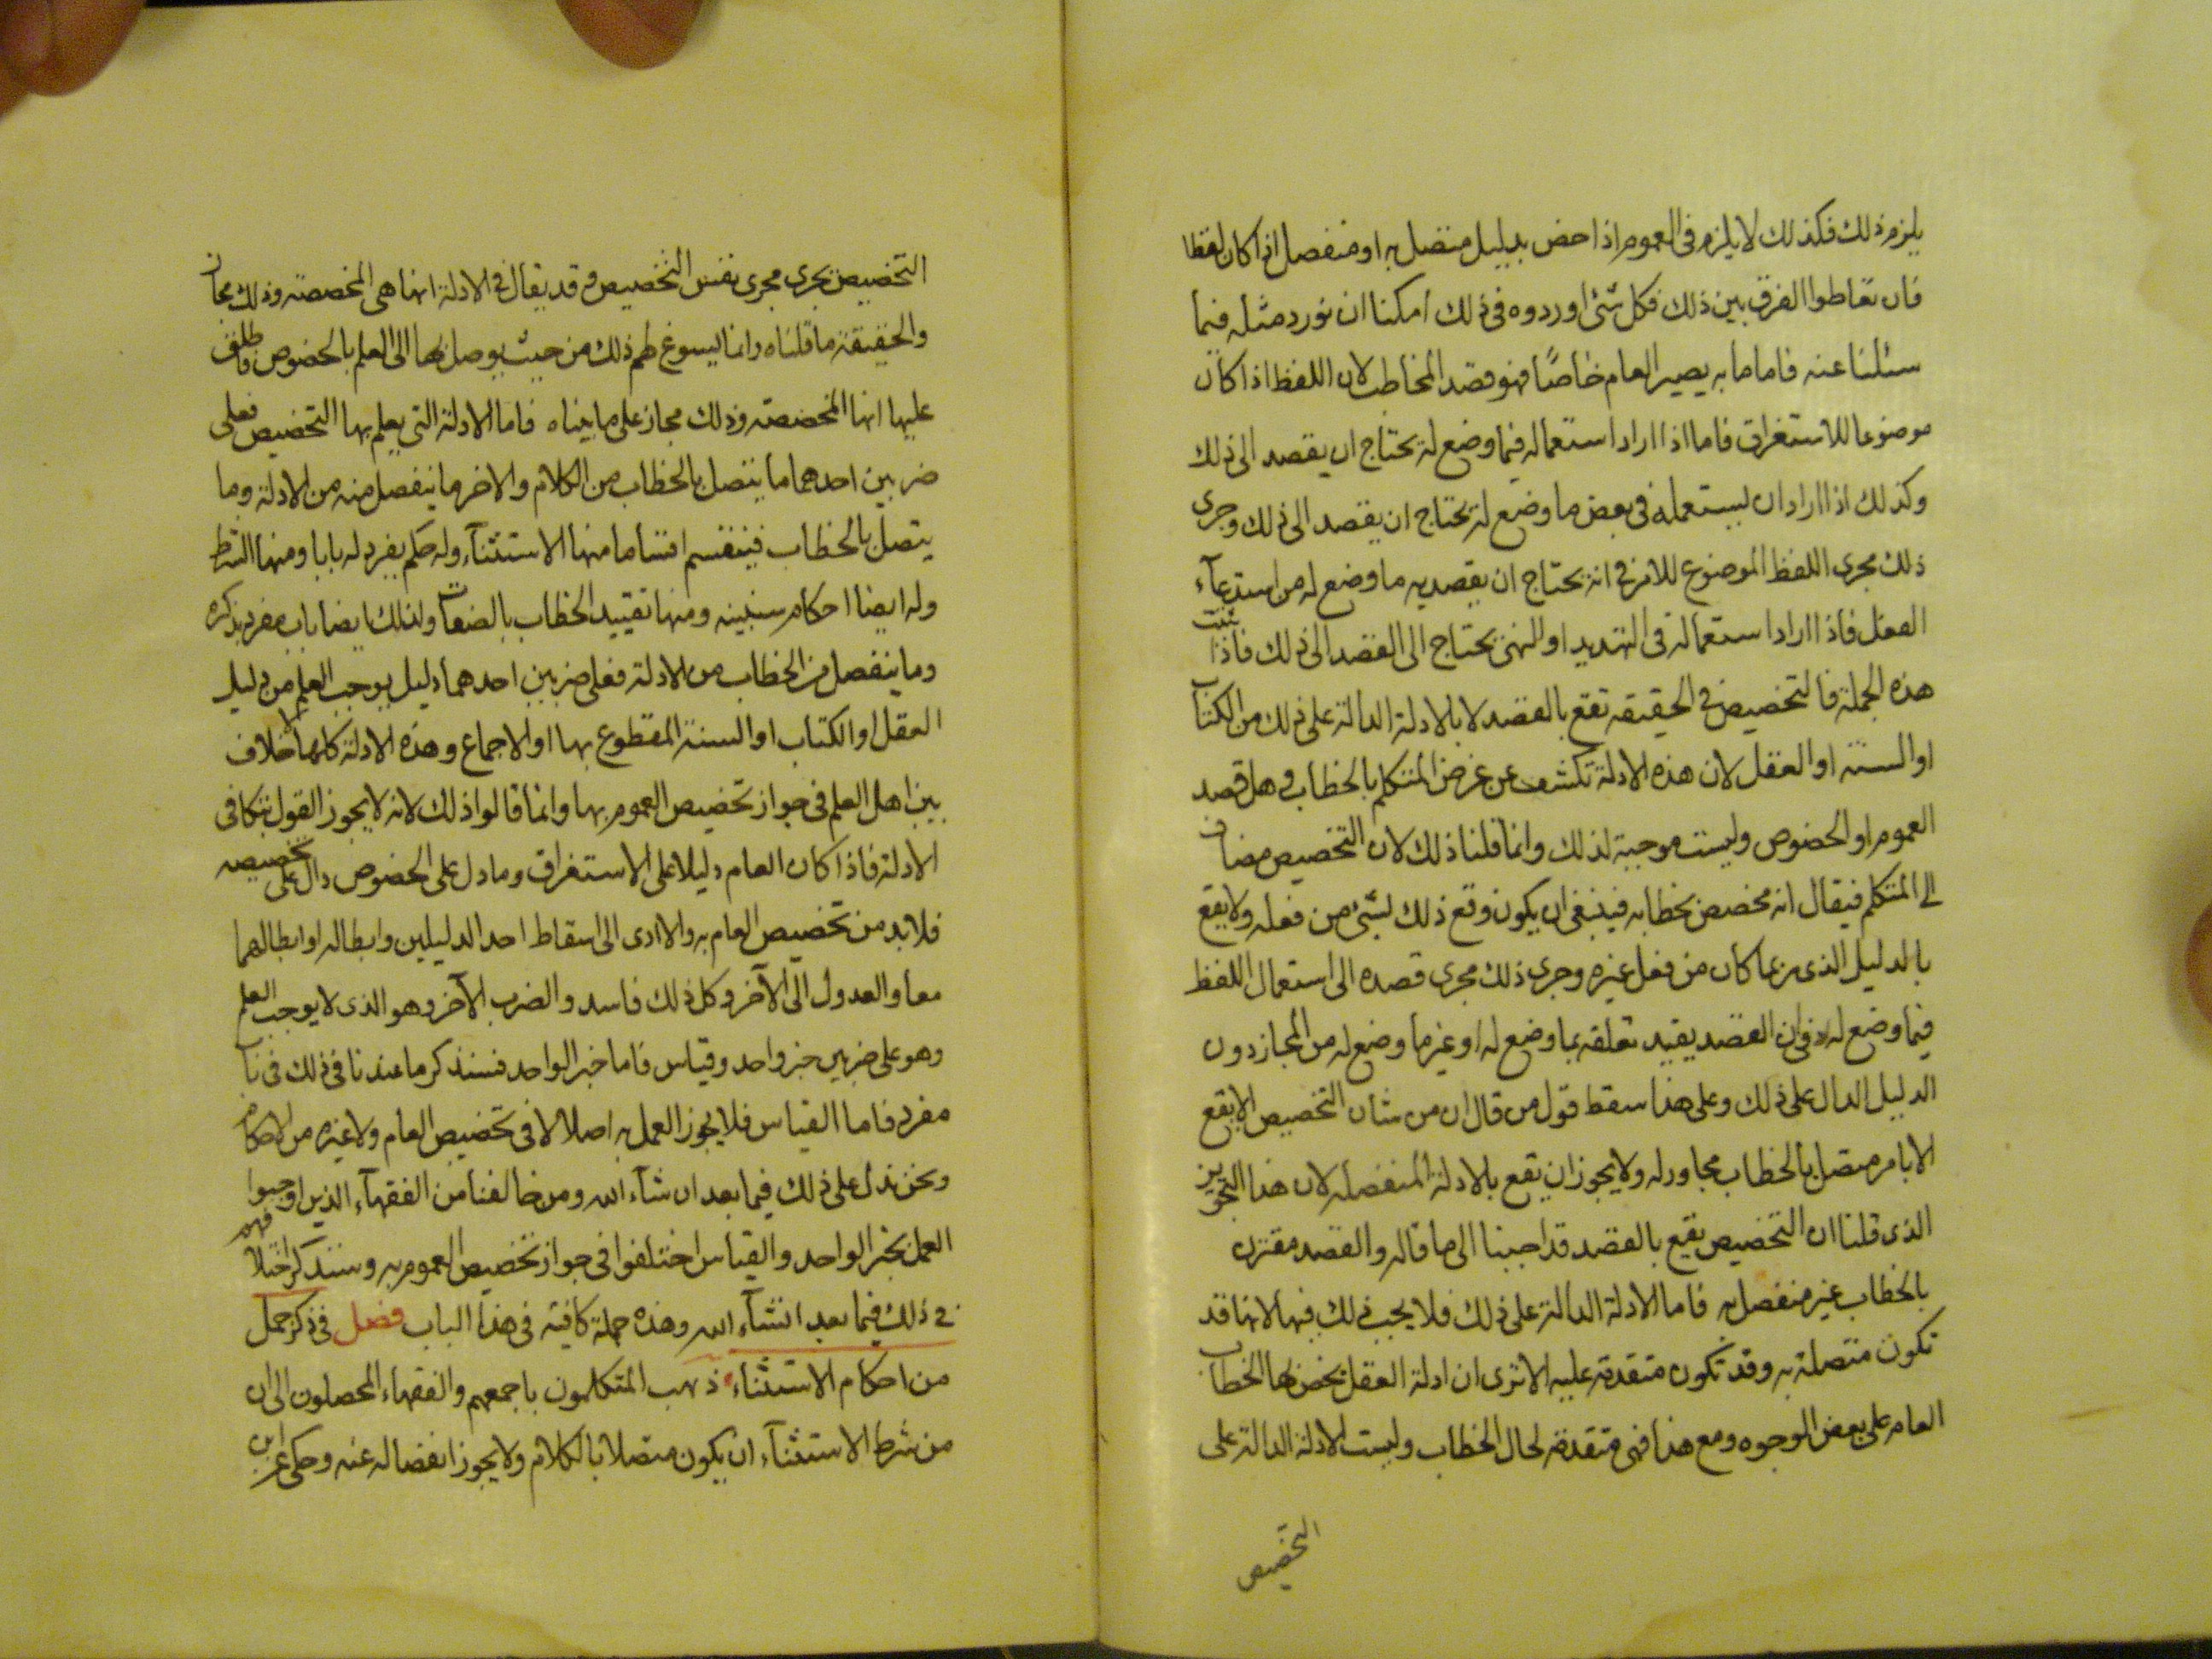 يلزم ذلك فكذلك لا يلزم فى العموم اذا خص بدليل متصل به او منفصل اذا كان لفظا
فان تعاطوا الفرق بين ذلك فكل شئ اوردوه فى ذلك امكننا ان نورد مثله فيما
سئلنا عنه فاما ما به يصير العام خاصًا فهو قصد المخاطب لان اللفظ اذا كان
موضوعا للاستغراق فاما اذا اراد استعماله فيما وضع له يحتاج ان يقصد الى ذلك
وكذلك اذا اراد ان يستعمله فى بعض ما وضع له يحتاج ان يقصد الى ذلك وجرى
ذلك مجرى اللفظ الموضوع للامر فى انه يحتاج ان يقصد به ما وضع له من استدعآء
الفعل فاذا اراد استعماله فى التهديد او النهى يحتاج الى القصد الى ذلك فاذا ثبت
هذه الجملة فالتخصيص فى الحقيقه تقع بالقصد لا بالادلة الدالة على ذلك من الكتاب
او السنه او العقل لان هذه الادلة تكشف عن غرض المتكلم بالخطاب فى هل قصد
العموم او الخصوص وليست موجبة لذلك وانما قلنا ذلك لان التخصيص مضاف
الى المتكلم فيقال انه مخصص بخطابه فينبغى ان يكون وقع ذلك لشئ من فعله ولا يقع
بالدليل الذى ربما كان من فعل غيره وجرى ذلك مجرى قصده الى استعمال اللفظ
فيما وضع له فى ان القصد يفيد تعلقه بما وضع له او غير ما وضع له من المجاز دون
الدليل الدال على ذلك وعلى هذا سقط قول من قال ان من شان التخصيص الا يقع
الا بامر متصل بالخطاب مجاور له ولا يجوز ان يقع بالادلة المنفصله لان هذا التجويز
الذى قلنا ان التخصيص يقع بالقصد قد اجبنا الى ما قاله والقصد مقترن
بالخطاب غير منفصل به فاما الادلة الدالة على ذلك فلا يجب ذلك فيها لانها قد
تكون متصلة به وقد تكون متقدمة عليه الا ترى ان ادلة العقل يخص بها الخطاب
العام على بعض الوجوه ومع هذا فهى متقدمة لحال الخطاب وليست الادلة الدالة على
التخصيص
التخصيص يجرى مجرى نفس التخصيص وقد يقال فى الادلة انها هى المخصصه وذلك مجاز
والحقيقة ما قلناه وانما يسوغ لهم ذلك من حيث يوصل بها الى العلم بالخصوص فاطلق
عليها انها المخصصه وذلك مجاز على ما بيناه فاما الادلة التى يعلم بها التخصيص فعلى
ضربين احدهما ما يتصل بالخطاب من الكلام والاخر ما ينفصل منه من الادلة وما
يتصل بالخطاب فينقسم اقساما منها الاستثنآء وله حكم يفرد له بابا ومنها الشرط
وله ايضا احكام سنبينه ومنها تقييد الخطاب بالصفات ولذلك ايضا باب مفرد يذكره
وما ينفصل من الخطاب من الادلة فعلى ضربين احدهما دليل يوجب العلم من دليل
العقل او الكتاب او السنة المقطوع بها او الاجماع وهذه الادلة كلها لا خلاف
بين اهل العلم فى جواز تخصيص العموم بها وانما قالوا ذلك لانه لا يجوز القول بتكافى
الادلة فاذا كان العام دليلا على الاستغراق وما دل على الخصوص دال على تخصيصه
فلا بد من تخصيص العام به والا ادى الى اسقاط احد الدليلين وابطاله او ابطالهما
معا والعدول الى الآخر وكل ذلك فاسد والضرب الآخر وهو الذى لا يوجب العلم
وهو على ضربين خبر واحد وقياس فاما خبر الواحد فسنذكر ما عندنا فى ذلك فى باب
مفرد فاما القياس فلا يجوز العمل به اصلا لا فى تخصيص العام ولا غيره من الاحكام
ونحن ندل على ذلك فيما بعد ان شآء الله ومن خالفنا من الفقهآء الذين اوجبوا
العمل بخبر الواحد والقياس اختلفوا فى جواز تخصيص العموم به وسنذكر اختلافهم
فى ذلك فيما بعد انشآء الله وهذه جملة كافيه فى هذا الباب فصل فى ذكر جمل
من احكام الاستثناء ذهب المتكلمون باجمعهم والفقهاء المحصلون الى ان
من شرط الاستثنآء ان يكون متصلا بالكلام ولا يجوز انفصاله عنه وحكى عن ابن